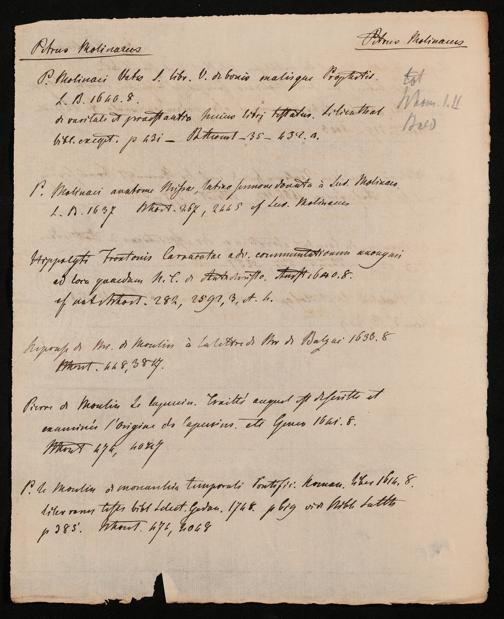 Petrus Molinaeus Petrus Molinaeus
P. Molinaei Vates s. libr. V. de bonis malisque Prophetis.
L. B. 1640. 8.
de raritate et praestantia hujus libri testatur Lilienthal
bibl. exeget. p 431 — 35 — 432. a.
P. Molinaei anatome Missae latino sermone donata à Lud. Molinaeo
L. B. 1637 267, 2445 cf Lud. Molinaeus
Hippolyti Frontonis Caracotae adv. commentationem anonymi
ad loca quaedam N. T. de Antichristo. Amst. 1640. 8.
cf 282, 2592, 3, A. b.
Reponse de Mr. de Moulin à la lettre de Mr de Balzac 1633. 8
448, 3847.
Pierre de Moulin le capucin. Traitté auquel est descritte et
examinée l'Origine des Capucins. etc Genev 1641. 8.
474, 4047
P. le Moulin de monarchia temporali Pontific. Roman. 1614. 8.
liber rarus teste bibl select. Gedan. 1748. p 619 vid Bibl
p 385. 474, 4048